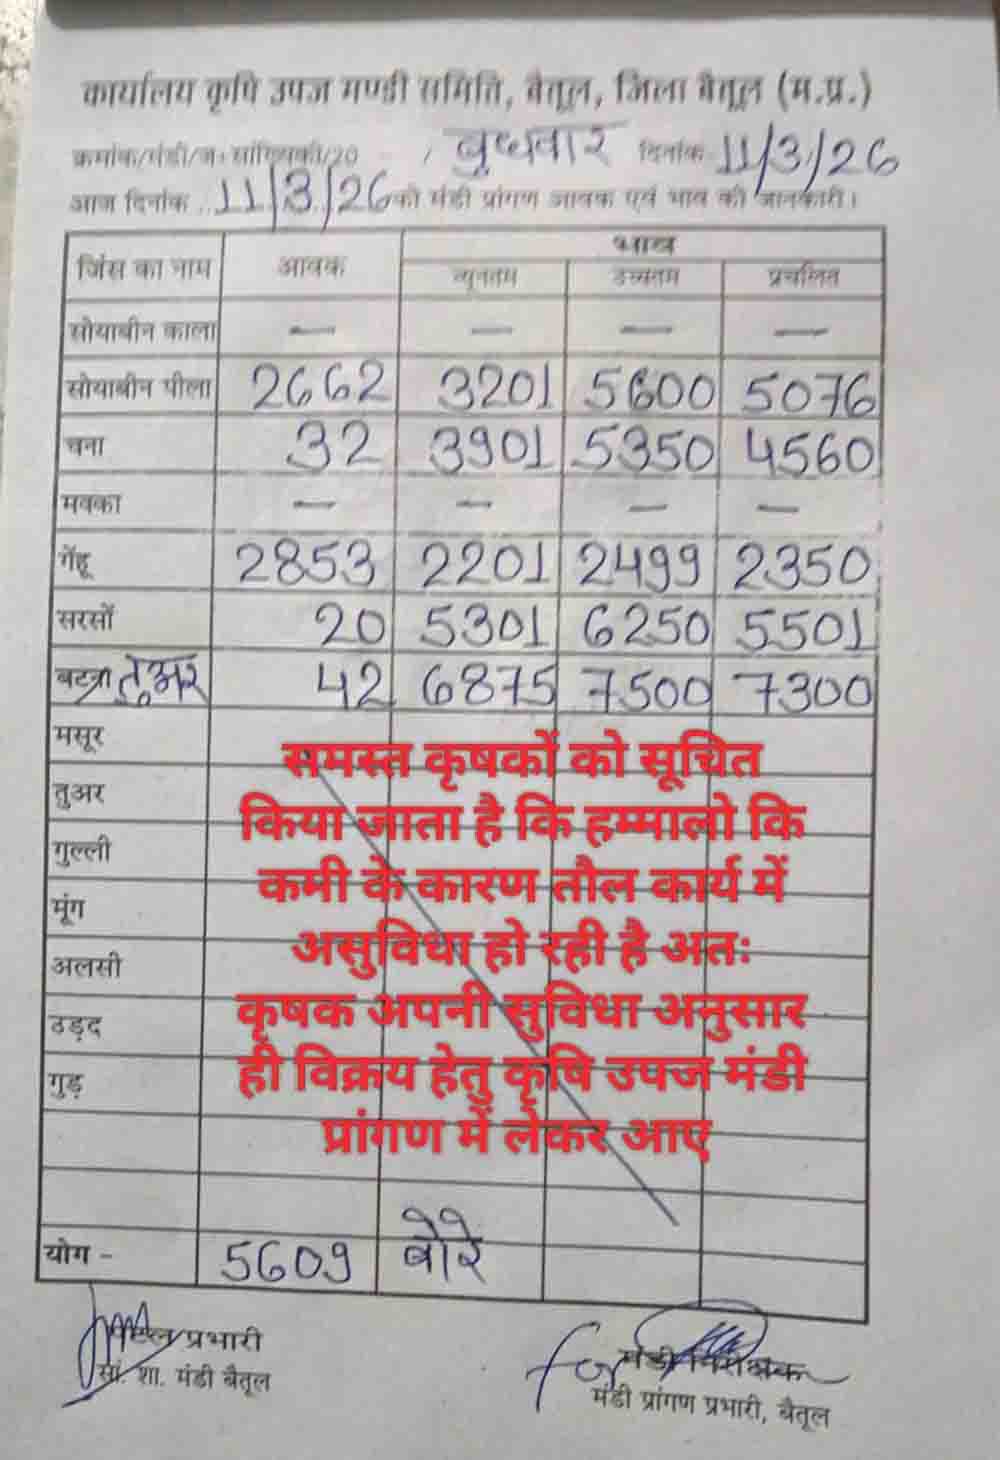 कार्यालय कृषि उपज मण्डी समिति, बैतूल, जिला बैतूल (म.प्र.)
क्रमांक/मंडी/ज. सांख्यिकी/20 / बुधवार दिनांक 11/3/26
आज दिनांक 11/3/26 को मंडी प्रांगण आवक एवं भाव की जानकारी।
जिंस का नाम आवक भाव
न्यूनतम उच्चतम प्रचलित
सोयाबीन काला — — — —
सोयाबीन पीला 2662 3201 5600 5076
चना 32 3901 5350 4560
मक्का — — — —
गेंहू 2853 2201 2499 2350
सरसों 20 5301 6250 5501
बटरा तुअर 42 6875 7500 7300
मसूर
तुअर
गुल्ली
मूंग
अलसी
उड़द
गुड़
समस्त कृषकों को सूचित
किया जाता है कि हम्मालो कि
कमी के कारण तौल कार्य में
असुविधा हो रही है अतः
कृषक अपनी सुविधा अनुसार
ही विक्रय हेतु कृषि उपज मंडी
प्रांगण में लेकर आए
योग - 5609 बोरे
प्रभारी
सां. शा. मंडी बैतूल
for मंडी निरीक्षक
मंडी प्रांगण प्रभारी, बैतूल